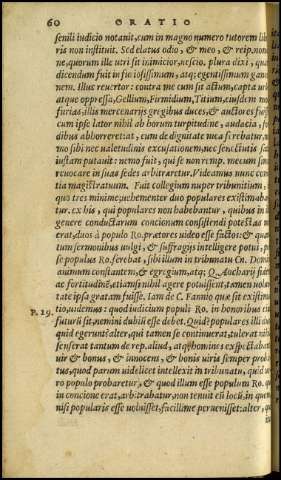 60 ORATIO
senili iudicio notauit, cum in magno numero tutorem libe
ris non instituit. Sed elatus odio, & meo, & reip. nomi
ne, quorum ille utri sit inimicior, nescio. plura dixi, quam
dicendum fuit in furiosissimum, atq; egentissimum ganeo
nem. Illuc reuertor: contra me cum sit actum, capta urbe
atque oppressa, Gellium, Firmidium, Titium, eiusdem modi
furias, illis mercenariis gregibus duces, & auctores fuisse
cum ipse lator nihil ab horum turpitudine, audacia, sor
dibus abhorreret: at, cum de dignitate mea ferebatur, ne
mo sibi nec ualetudinis excusationem, nec senectutis satis
iustam putauit: nemo fuit, qui se non remp. mecum simul
reuocare in suas sedes arbitraretur. Videamus nunc comi
tia magistratuum. Fuit collegium nuper tribunitium,
quo tres minime, uehementer duo populares existimaban
tur. ex his, qui populares non habebantur, quibus in illo
genere conductarum concionum consistendi potestas
erat, duos à populo Ro. prætores uideo esse factos: & quan
tum sermonibus uulgi, & suffragiis intelligere potui, præ
se populus Ro. ferebat, sibi illum in tribunatu Cn. Domitii
animum constantem, & egregium, atq; Q. Ancharij fidem,
ac fortitudinē, etiam si nihil agere potuissent, tamen uolun
tate ipsa gratum fuisse. Iam de C. Fannio quæ sit existima
P. 29. tio, uidemus: quod iudicium populi Ro. in honoribus eius
futurū sit, nemini dubiū esse debet. Quid? populares illi duo
quid egerunt? alter, qui tamen se continuerat, tulerat nihil,
senserat tantum de rep. aliud, atq; homines exspectabant,
uir & bonus, & innocens, & bonis uiris semper proba
tus, quod parum uidelicet intellexit in tribunatu, quid ue
ro populo probaretur, & quod illum esse populum Ro. qui
in concione erat, arbitrabatur, non tenuit eū locū, in quem
nisi popularis esse uoluisset, facillime peruenisset: alter, qui